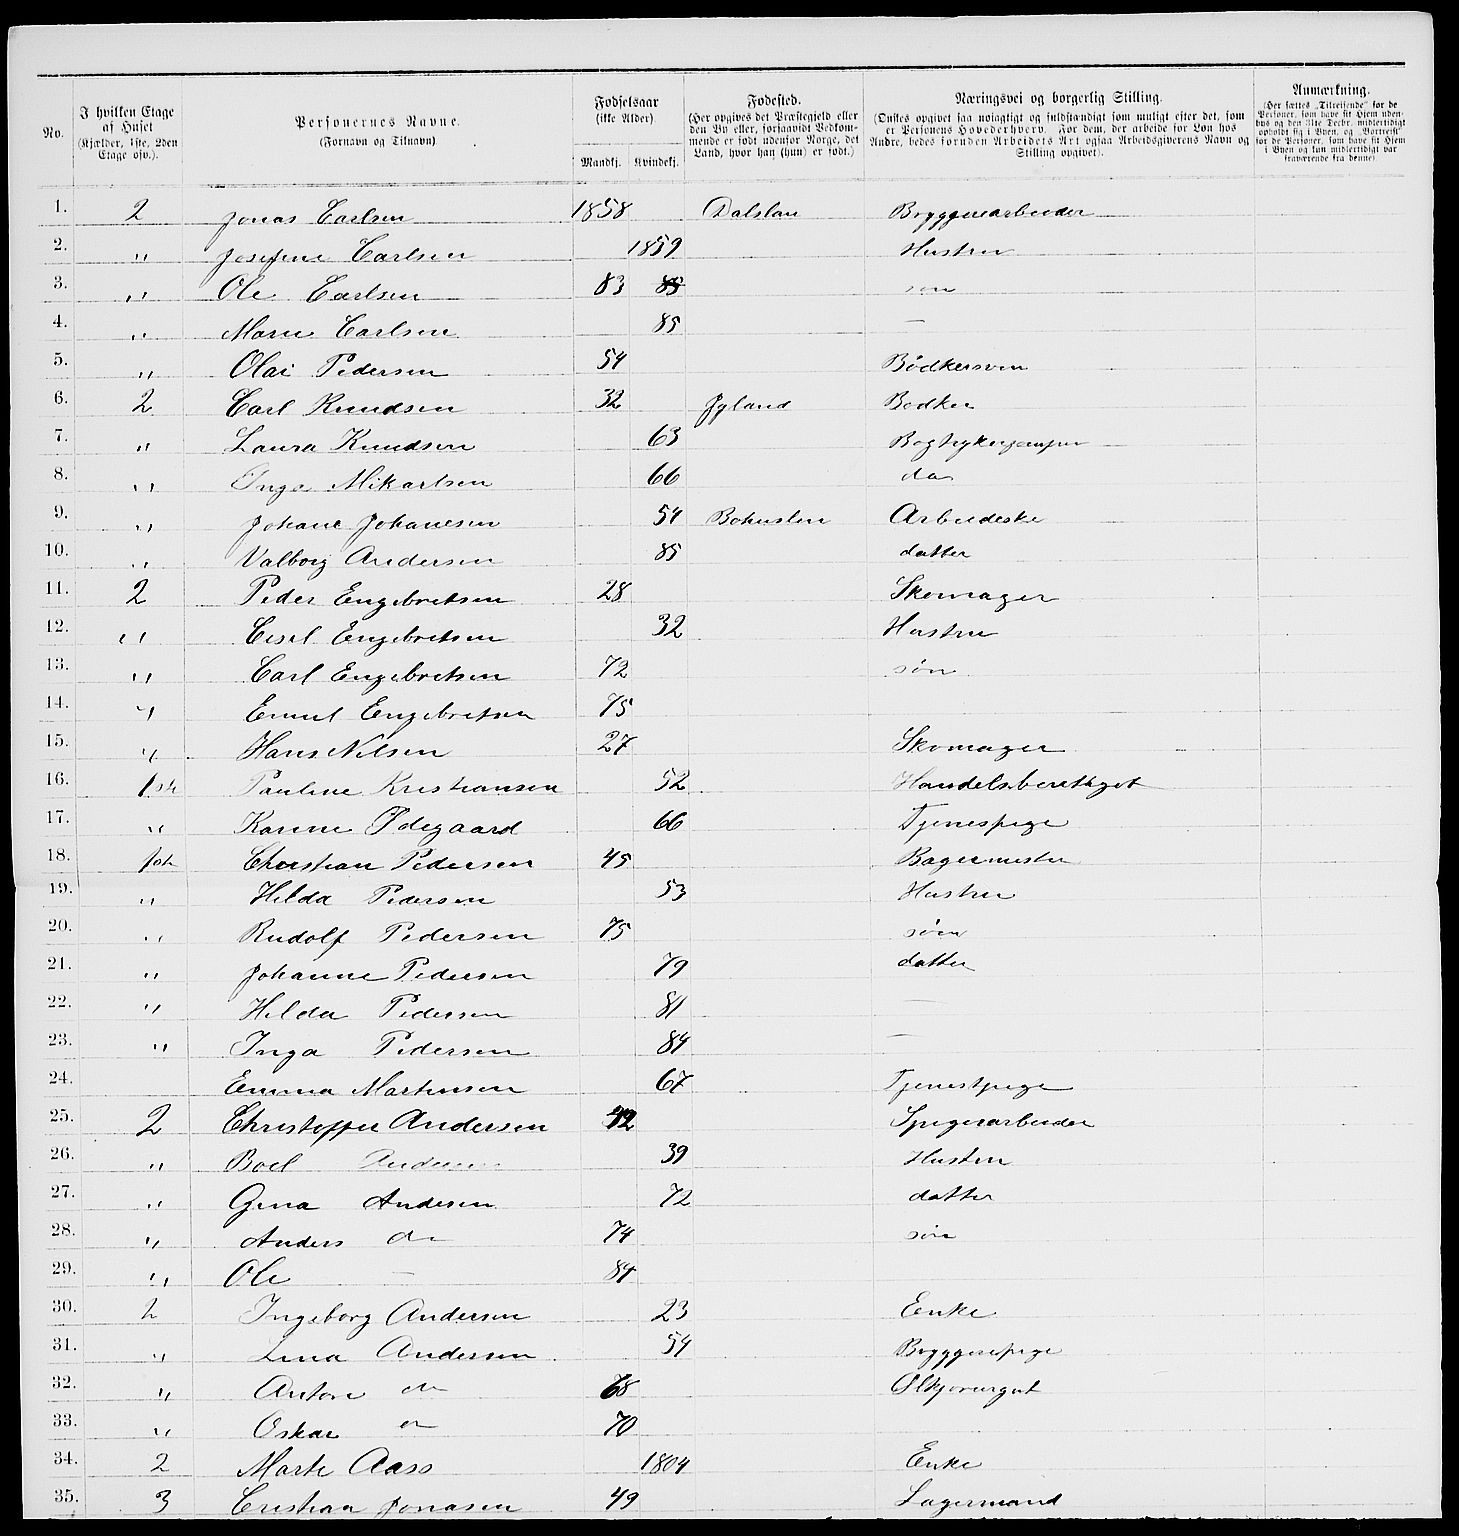 No.
I hvilken Etage af Huset (Kjælder, 1ste, 2den Etage osv.).
Personernes Navne. (Fornavn og Tilnavn)
Fødselsaar (ikke Alder). Mandkj. Kvindekj.
Fødested. (Her opgives det Præstegjeld eller den By eller, forsaavidt Vedkommende er født udenfor Norge, det Land, hvor han (hun) er født.)
Næringsvei og borgerlig Stilling. (Ønskes opgivet saa nøiagtigt og fuldstændigt som muligt efter det, som er Personens Hovederhverv. For dem, der arbeide for Løn hos Andre, bedes foruden Arbeidets Art ogsaa Arbeidsgiverens Navn og Stilling opgivet).
Anmærkning. (Her sættes „Tilreisende“ for de Personer, som have sit Hjem udenbys og den 31te Decbr. midlertidigt opholdt sig i Byen, og „Bortreist“ for de Personer, som have sit Hjem i Byen og kun midlertidigt var fraværende fra denne)
1. 2 Jonas Carlsen 1858 Dalslan Bryggeriarbeider
2. " Josefine Carlsen 1859 Hustru
3. " Ole Carlsen 83 85 søn
4. " Marie Carlsen 85 —
5. " Olai Pedersen 54 Bødkersven
6. 2 Carl Knudsen 32 Jyland Bødker
7. " Laura Knudsen 63
8. " Inga Mikarlsen 66 do
9. " Johane Johanesen 54 Bohuslen Arbeideske
10. " Valborg Andersen 85 datter
11. 2 Peder Engebretsen 28 Skomager
12. " Engebretsen 32 Hustru
13. " Carl Engebretsen 72 søn
14. " Emil Engebretsen 75
15. " Hans Nilsen 27 Skomager
16. 1ste Pauline Kristiansen 52 Handelsberettiget
17. " Karine Ødegaard 66 Tjenespige
18. 1ste Christian Pedersen 45 Bagermester
19. " Hilda Pedersen 53 Hustru
20. " Rudolf Pedersen 75 søn
21. " Johanne Pedersen 79 datter
22. " Hilda Pedersen 81 —
23. " Inga Pedersen 84 —
24. Emma Martinsen 67 Tjenestpige
25. 2 Christoffer Andersen 42 Spigerarbeider
26. " Boel Andersen 39 Hustru
27. " Gina Andersen 72 datter
28. " Anders do 74 søn
29. " Ole — 84
30. 2 Ingeborg Andersen 23 Enke
31. " Lina Andersen 54 Bryggeripige
32. " Anton do 68 Ølkjørergut
33. " Oskar do 70
34. 2 Marte Aass 1804 Enke
35. 3 Cristian Jonasen 49 Lagermand